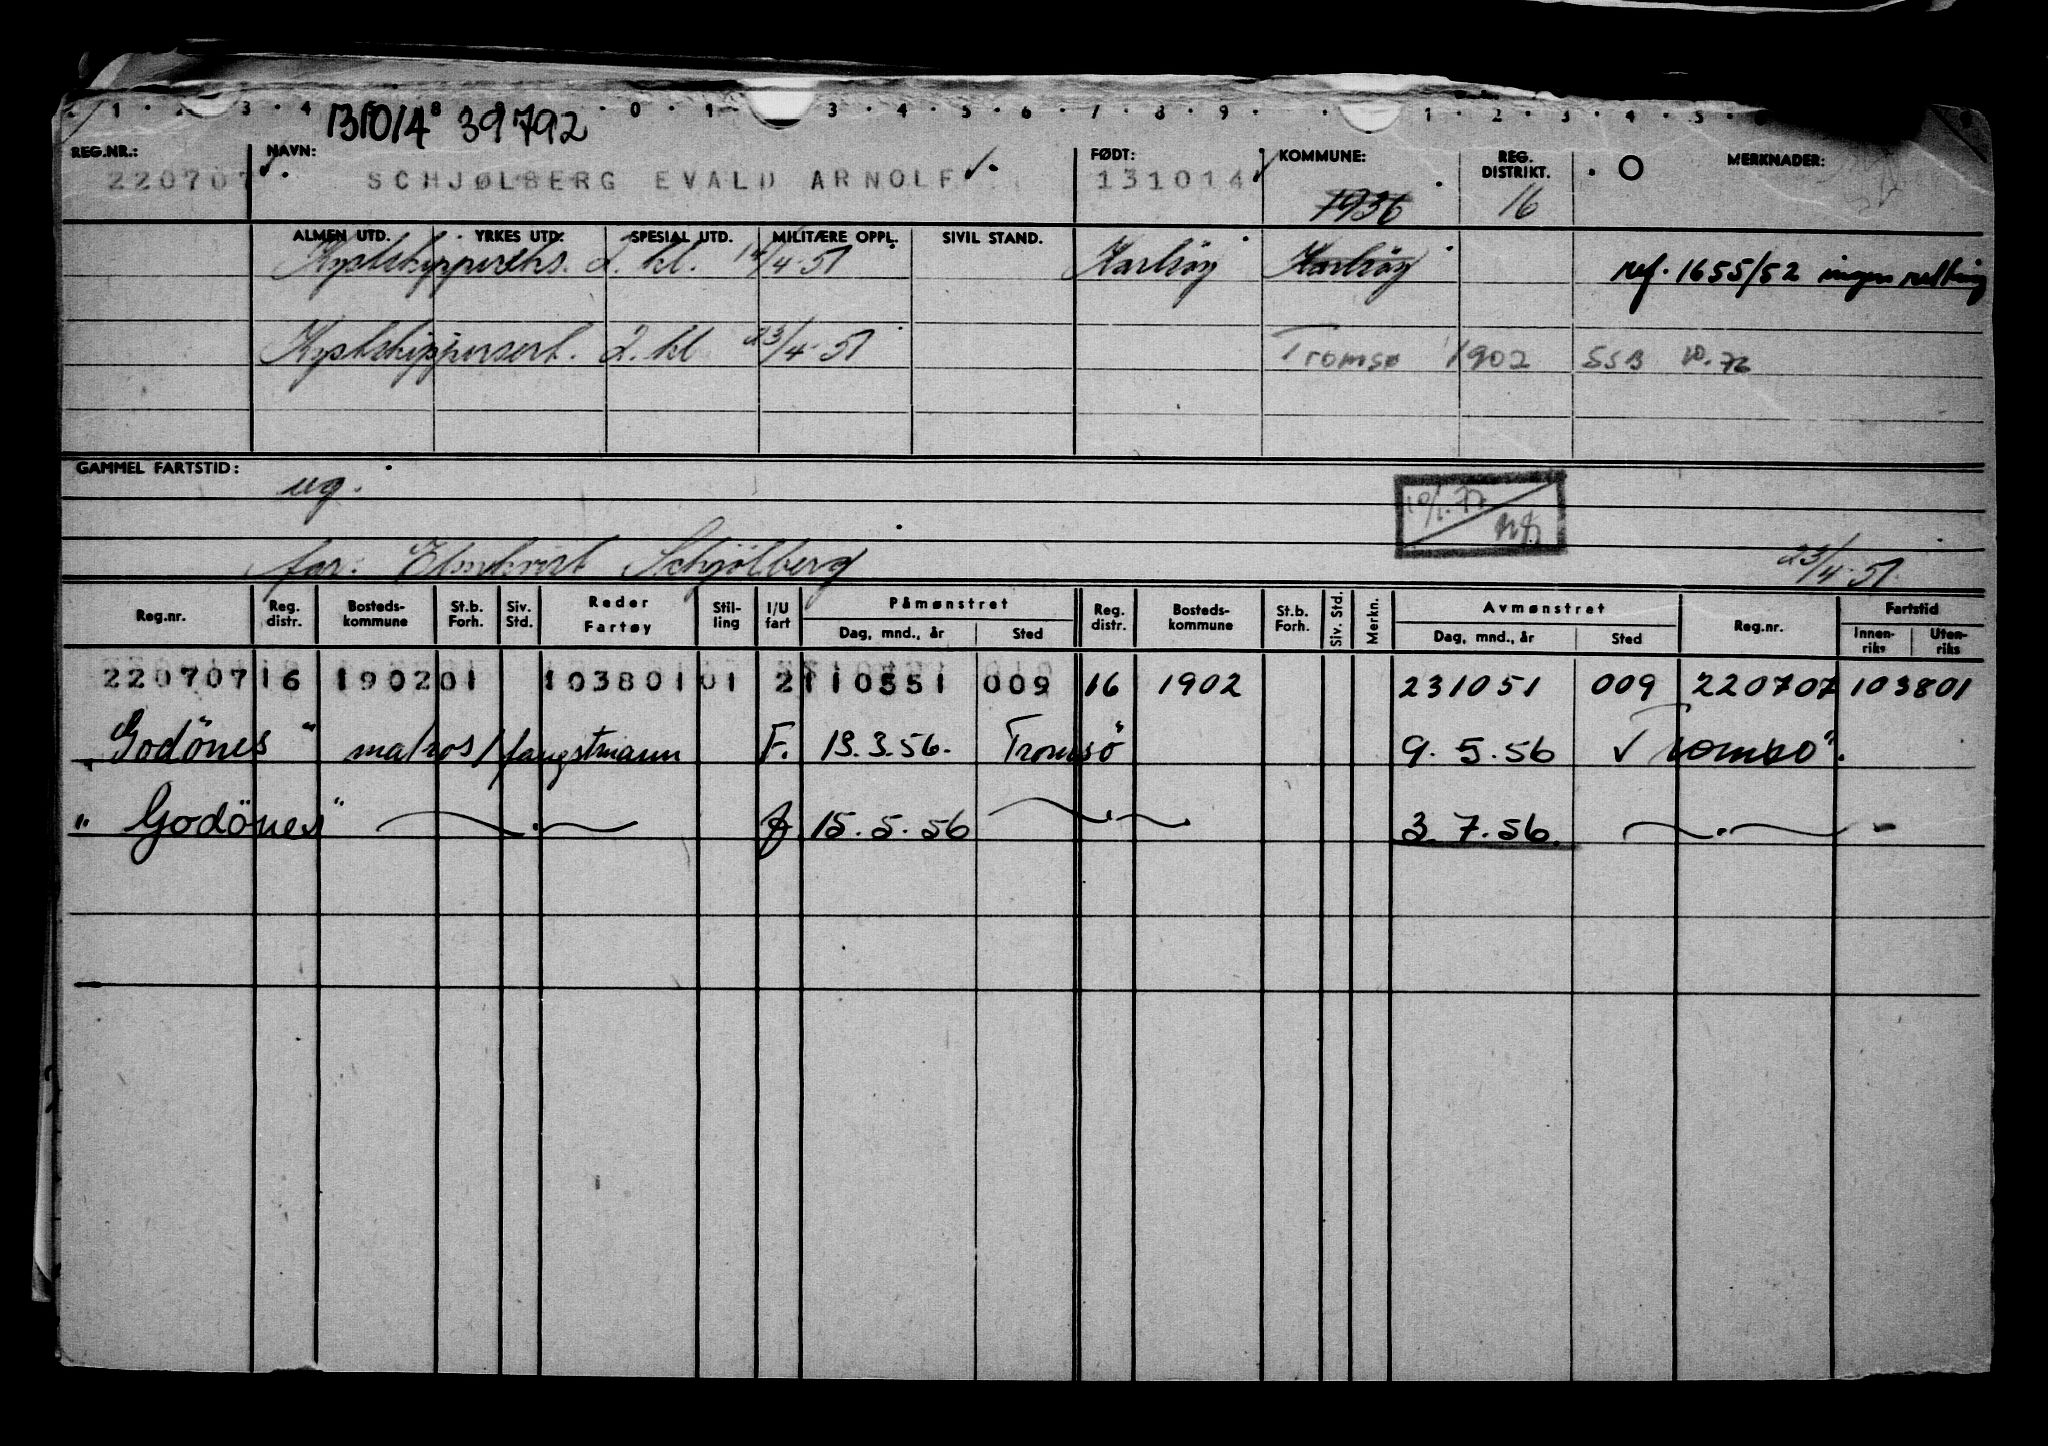 131014 39792
REG.NR.: NAVN: FØDT: KOMMUNE: REG. DISTRIKT. MERKNADER:
220707 SCHJØLBERG EVALD ARNOLF 131014 1936 16
ALMEN UTD. YRKES UTD. SPESIAL UTD. MILITÆRE OPPL. SIVIL STAND.
Kystskippereks. 2. kl. 14/4-51 Karlsöy Karlsöy ref. 1655/52 ingen retting
Kystskippersert. 2. kl 23/4-51 Tromsø 1902 SSB 10.76
GAMMEL FARTSTID:
ug.
far: Schjölberg 23/4-51.
Reg.nr. Reg. distr. Bosteds-kommune St.b. Forh. Siv. Std. Reder Fartøy Stil-ling I/U fart Påmønstret Reg. distr. Bosteds-kommune St.b. Forh. Siv. Std. Merkn. Avmønstret Reg.nr. Fartstid
Dag, mnd., år Sted Dag, mnd., år Sted Innen-riks Uten-riks
220707 16 1902 01 103801 01 2 110551 009 16 1902 231051 009 220707 103801
"Godönes" matros/fangstmann F. 13.3.56. Tromsö 9.5.56 Tromsö.
"Godönes" f 15.5.56 3.7.56.